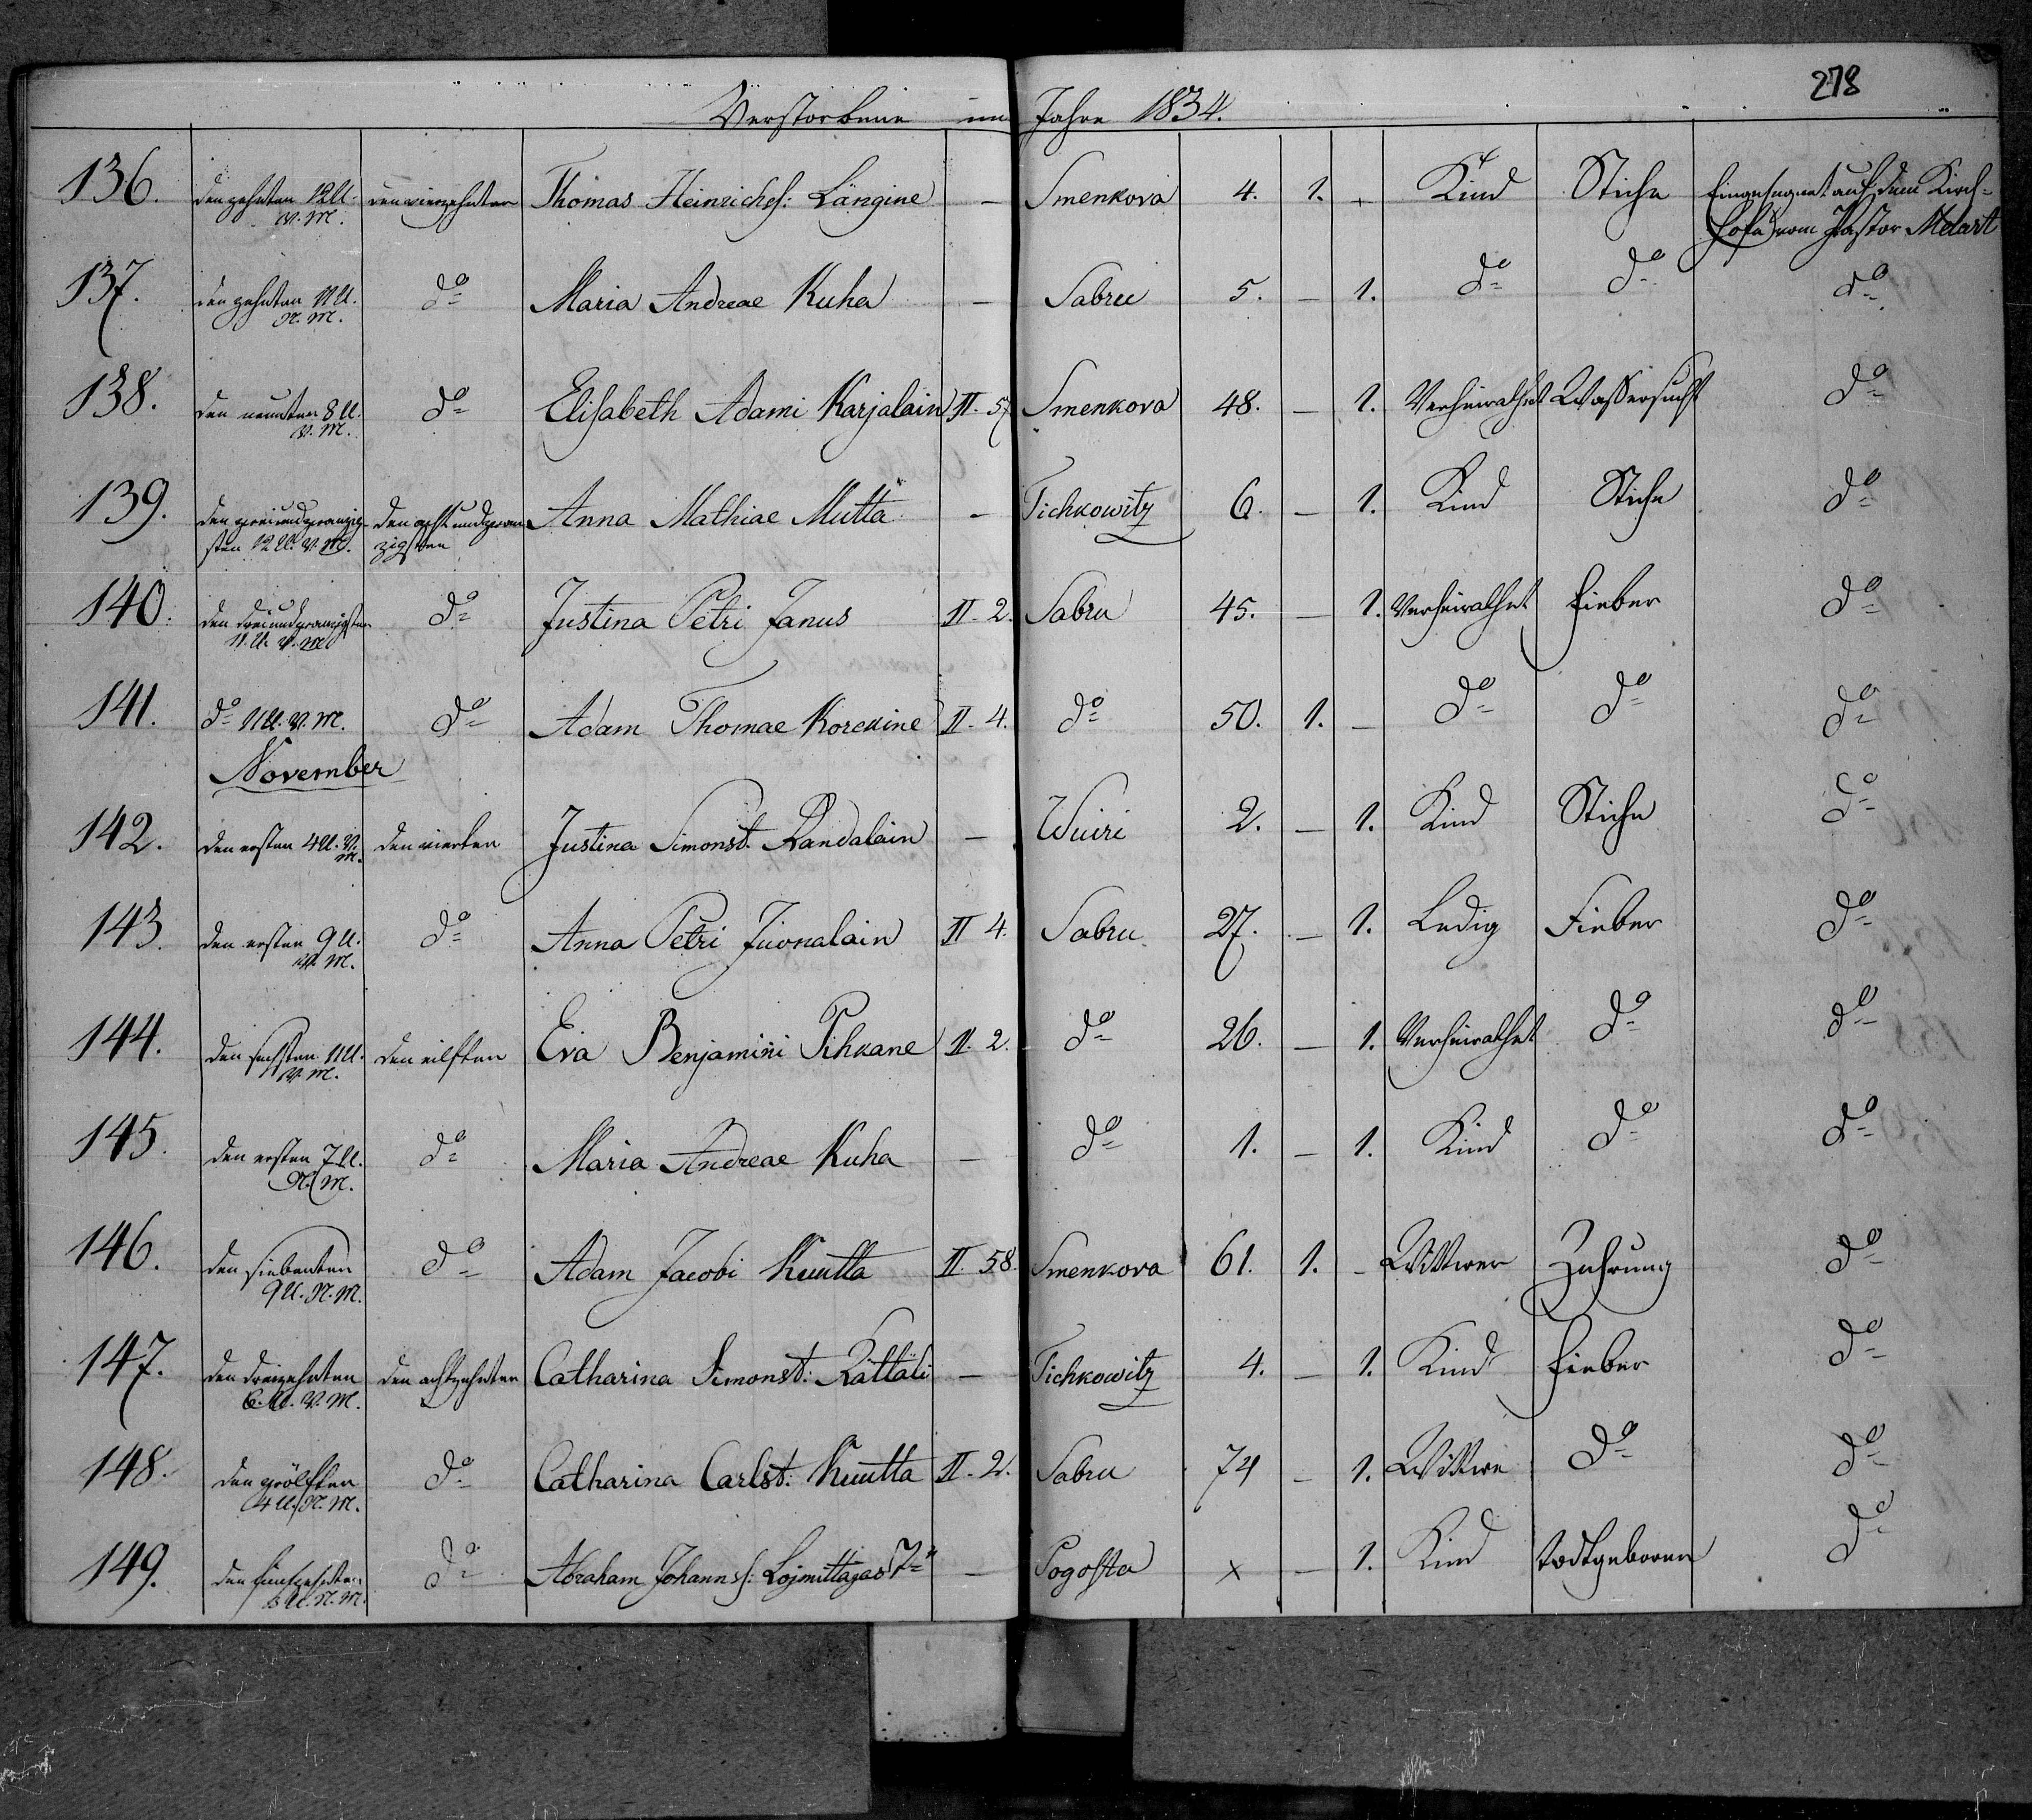 278
Verstorbene im Jahre 1834.
136. den zehnten 12 U. V. M. den vierzehnten Thomas Heinrichs: Längine – Smenkova 4. 1. – Kind Stiche Eingesegnet auf dem Kirch-
hofe vom Pastor Melart
137. den zehnten 11 U. N. M. do Maria Andreae Kuha – Sabru 5. – 1. do do do
138. den neunten 8 U. V. M. do Elisabeth Adami Karjalain II. 57 Smenkova 48. – 1. Verheirathet Wassersucht do
139. den zweiundzwanzig-
sten 12 U. V. M. den acht und zwan
zigsten Anna Mathiae Mutta – Tichkowitz 6. – 1. Kind Stiche do
140. den dreiundzwanzigsten 11. U. V. M. do Justina Petri Janus II. 2. Sabru 45. – 1. Verheirathet Fieber do
141. do 11 U. V. M. do Adam Thomae Korckine II. 4. do 50. 1. – do do do
November
142. den ersten 4 U. V. M. den vierten Justina Simonst. Randalain – Wuiri 2. – 1. Kind Stiche do
143. den ersten 9 U. V. M. do Anna Petri Juonalain II 4. Sabru 27. – 1. Ledig Fieber do
144. den sechsten 11 U. V. M. den eilften Eva Benjamini Pihkane II. 2. do 26. – 1. Verheirathet do do
145. den ersten 7 U. N. M. do Maria Andreae Kuha – do 1. – 1. Kind do do
146. den siebenten 9 U. N. M. do Adam Jacobi Kuutta II. 58. Smenkova 61. 1. – Wittwer Zehrung do
147. den dreizehnten 6. U. V. M. den achtzehnten Catharina Simonst: Rättäli – Tichkowitz 4. – 1. Kind Fieber do
148. den zwölften 4 U. N. M. do Catharina Carlst: Kuutta II. 2. Sabru 74 – 1. Wittwe do do
149. den fünfzehnten 8 U. N. M. do Abraham Johanns: – Pogosta x – 1. Kind todtgeboren do